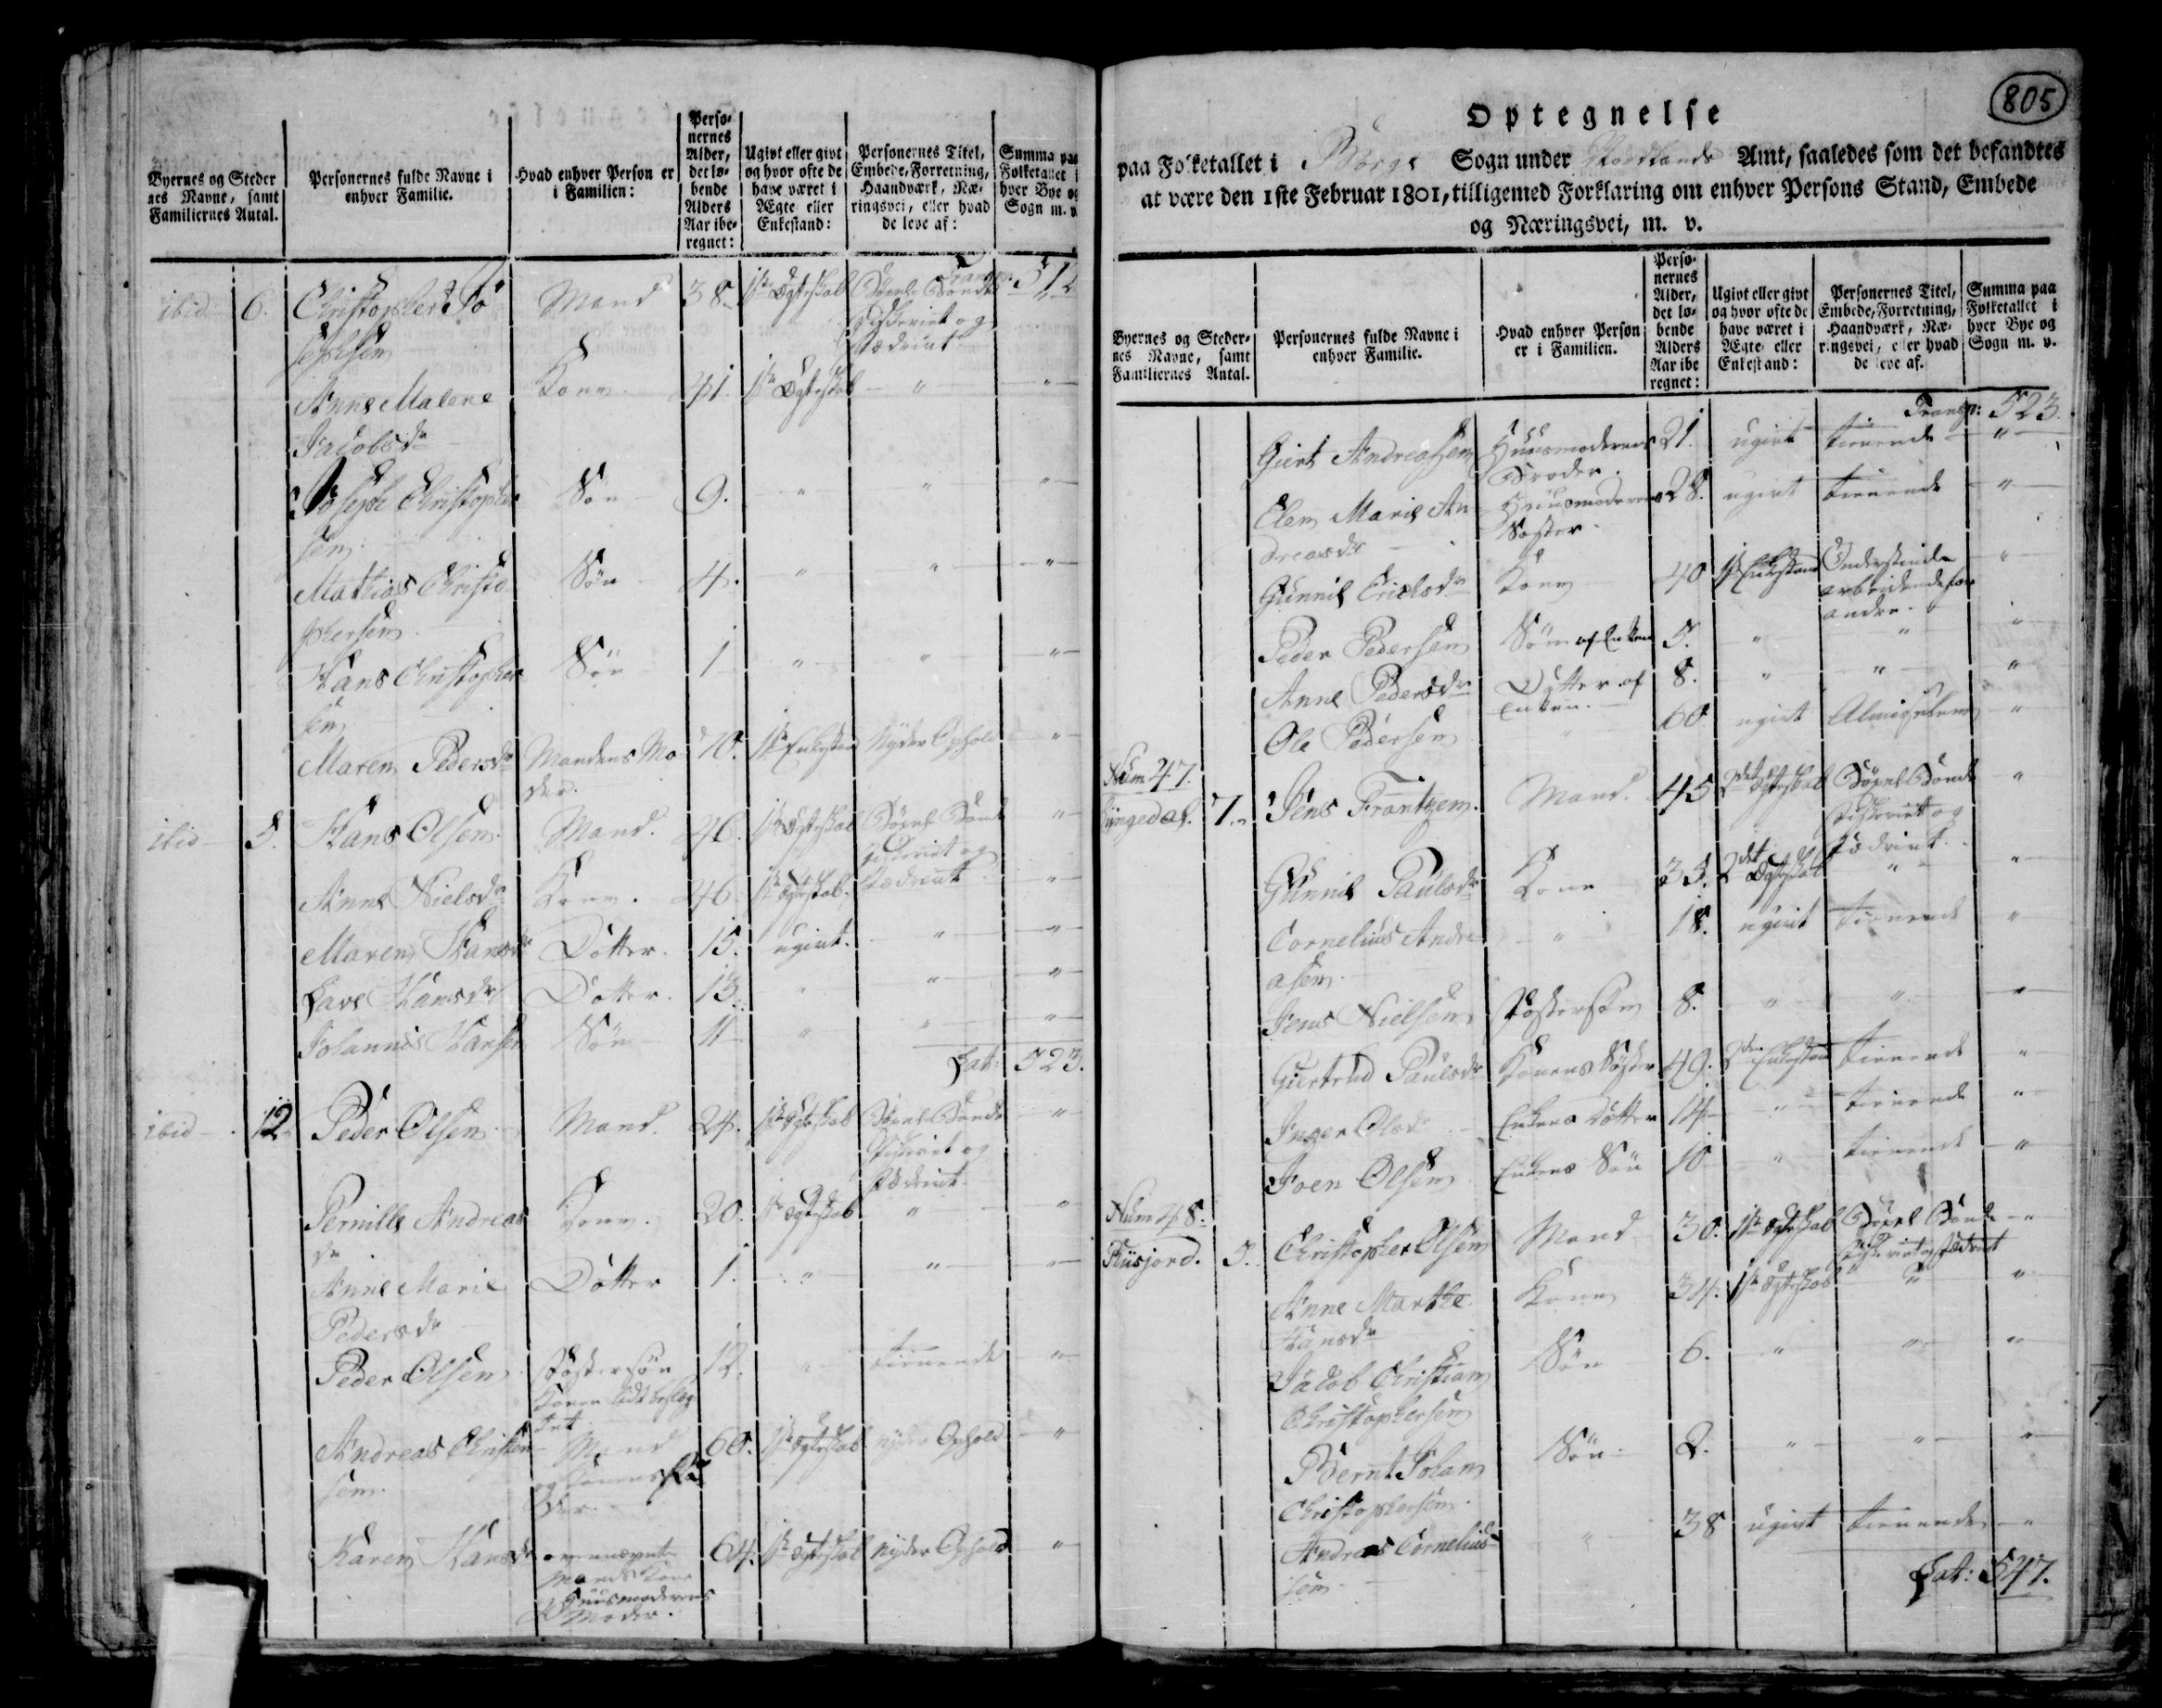 Byernes og Steder
nes Navne, samt
Familiernes Antal.
Personernes fulde Navne i
enhver Familie.
Hvad enhver Person er
i Familien:
Perso-
nernes
Alder,
det lø-
bende
Alders
Aar ibe-
regnet:
Ugivt eller givt
og hvor ofte de
have været i
Ægte eller
Enkestand:
Personernes Titel,
Embede, Forretning,
Haandværk, Næ-
ringsvei, eller hvad
de leve af:
Summa paa
Folketallet i
hver Bye og
Sogn m. v.
Transp: 512
ibid 6. Christopher Jo Mand 38. 1ste Ægteskab Bøxel Bonde "
sephsen Fiskeriet og
Fædrivt
Anne Malene Kone 41. 1ste Ægteskab " "
Jacobsdr
Joseph Christopher Søn 9. " " "
sen
Mathias Christo Søn 4. " " "
phersen
Hans Christopher Søn 1 " " "
sen
Maren Pedersdr Mandens Mo 70. 1ste Enkestand Nyder Ophold "
der.
ibid 5. Hans Olsen Mand. 46. 1ste Ægteskab Bøxel Bonde "
Fiskeriet og
Anne Nielsdr Kone. 46. 1ste Ægteskab. Fædrivt "
Maren Hansdr Dotter. 15. ugivt. " "
Lave Hansdr Dotter. 13. " " "
Johannes Hansen Søn 11 " " "
Lat: 523.
ibid 12 Peder Olsen Mand. 24. 1ste Ægteskab Bøxel Bonde "
Fiskeriet og
Fædrivt
Pernille Andreas Kone. 20. 1ste Ægteskab " "
dr
Anne Marie Dotter 1. " " "
Pedersdr
Peder Olsen Fostersøn 12. " tienende "
Konen lidt beslæg
tet
Andreas Christen Mand 60. 1ste Ægteskab nyder Ophold "
sen. og Konens Fa
der.
Karen Hansdr ovennævnte 64. 1ste Ægteskab nyder Ophold "
Mands Kone
Huusmoderens
Moder.
805
Optegnelse
paa Folketallet i Borge Sogn under Nordlands Amt, saaledes som det befandtes
at være den 1ste Februar 1801, tilligemed Forklaring om enhver Persons Stand, Embede
og Næringsvei, m. v.
Byernes og Steder-
nes Navne, samt
Familiernes Antal.
Personernes fulde Navne i
enhver Familie.
Hvad enhver Person
er i Familien.
Perso-
nernes
Alder,
det lø-
bende
Alders
Aar ibe
regnet:
Ugivt eller givt
og hvor ofte de
have været i
Ægte eller
Enkestand:
Personernes Titel,
Embede, Forretning,
Haandværk, Næ-
ringsvei, eller hvad
de leve af.
Summa paa
Folketallet i
hver Bye og
Sogn m. v.
Transp: 523.
Giert Andreasen Huusmoderens 21. ugivt tienende "
Broder.
Elen Marie An Huusmoderens 28. ugivt tienende "
dreasdr Søster.
Gunnil Erichsdr Kone 40 1ste Enkestand Inderstinde "
arbeidende for
andre.
Peder Pedersen Søn af Enken 5. " " "
Anne Pedersdr Dotter af 8. " " "
Enken.
Ole Pedersen " 60 ugivt Almisselem "
Num 47.
Lyngedal. 7. Jens Frantzen. Mand. 45 2det Ægteskab Bøxel Bonde "
Fiskeriet og
Fædrivt.
Gunnil Paulsdr Kone 33. 2det Ægteskab " "
Cornelius Andre " 18. ugivt tienende "
asen
Jens Nielsen Fostersøn 8. " " "
Giertrud Paulsdr Konens Søster 49. 2den Enkestand tienende "
Inger Olsdr Enkens Dotter 14 " tienende "
Joen Olsen Enkens Søn 10 " tienende "
Num 48.
Fiusjord. 5. Christopher Olsen Mand 30. 1ste Ægteskab Bøxel Bonde "
Fiskeriet og Fædrivt
Anne Marthe Kone 34. 1ste Ægteskab " "
Hansdr
Jacob Christian Søn 6. " " "
Christophersen
Bernt Johan Søn 2. " " "
Christophersen.
Andreas Cornelius " 38 ugivt tienende "
sen
Lat: 547.